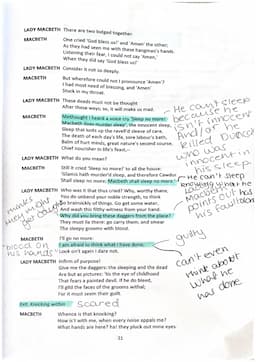 LADY MACBETH There are two lodged together.
MACBETH One cried 'God bless us!' and 'Amen' the other,
As they had seen me with these hangman's hands.
Listening their fear, I could not say 'Amen,'
When they did say 'God bless us!'
LADY MACBETH Consider it not so deeply.
MACBETH But wherefore could not I pronounce 'Amen'?
I had most need of blessing, and 'Amen'
Stuck in my throat.
LADY MACBETH These deeds must not be thought
After these ways; so, it will make us mad.
MACBETH Methought I heard a voice cry 'Sleep no more!
Macbeth does murder sleep', the innocent sleep,
Sleep that knits up the ravell'd sleeve of care,
The death of each day's life, sore labour's bath,
Balm of hurt minds, great nature's second course,
Chief nourisher in life's feast,--
LADY MACBETH What do you mean?
MACBETH Still it cried 'Sleep no more!' to all the house:
'Glamis hath murder'd sleep, and therefore Cawdor
Shall sleep no more; Macbeth shall sleep no more.'
LADY MACBETH Who was it that thus cried? Why, worthy thane,
You do unbend your noble strength, to think
So brainsickly of things. Go get some water,
And wash this filthy witness from your hand.
Why did you bring these daggers from the place?
They must lie there: go carry them; and smear
The sleepy grooms with blood.
MACBETH I'll go no more:
I am afraid to think what I have done;
Look on't again I dare not.
LADY MACBETH Infirm of purpose!
Give me the daggers: the sleeping and the dead
Are but as pictures: 'tis the eye of childhood
That fears a painted devil. If he do bleed,
I'll gild the faces of the grooms withal;
For it must seem their guilt.
Exit. Knocking within
scared
MACBETH Whence is that knocking?
How is't with me, when every noise appals me?
What hands are here? ha! they pluck out mine eyes.
21
He can't sleep
because he
isn't innocent
and killed
who was
innocent in
his sleep
He can't sleep
knowing what he
had
points out
guilty
can't even
think about
what he
had done
"blood on
his hands"